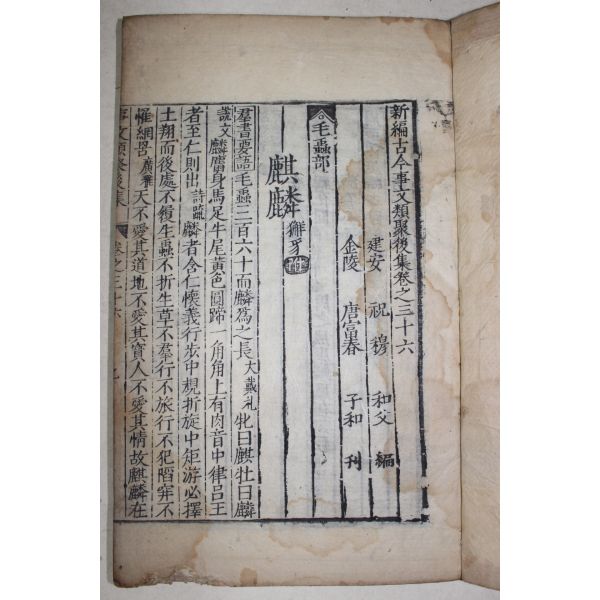 新編古今事文類聚後集卷之三十六
建安 祝穆 和父 編
金陵 唐富春 子和 刊
毛蟲部
麒麟 獬豸附
羣書要語毛蟲三百六十而麟爲之長大戴礼牝曰麒牡曰麟
說文麟麕身馬足牛尾黃色圓蹄一角角上有肉音中律吕王
者至仁則出詩疏麟者含仁懷義行步中規折旋中矩游必擇
土翔而後處不履生蟲不折生草不羣行不旅行不犯陷穽不
惟網罟廣雅天不愛其道地不愛其寶人不愛其情故麒麟在
事文類聚後集 卷之三十六